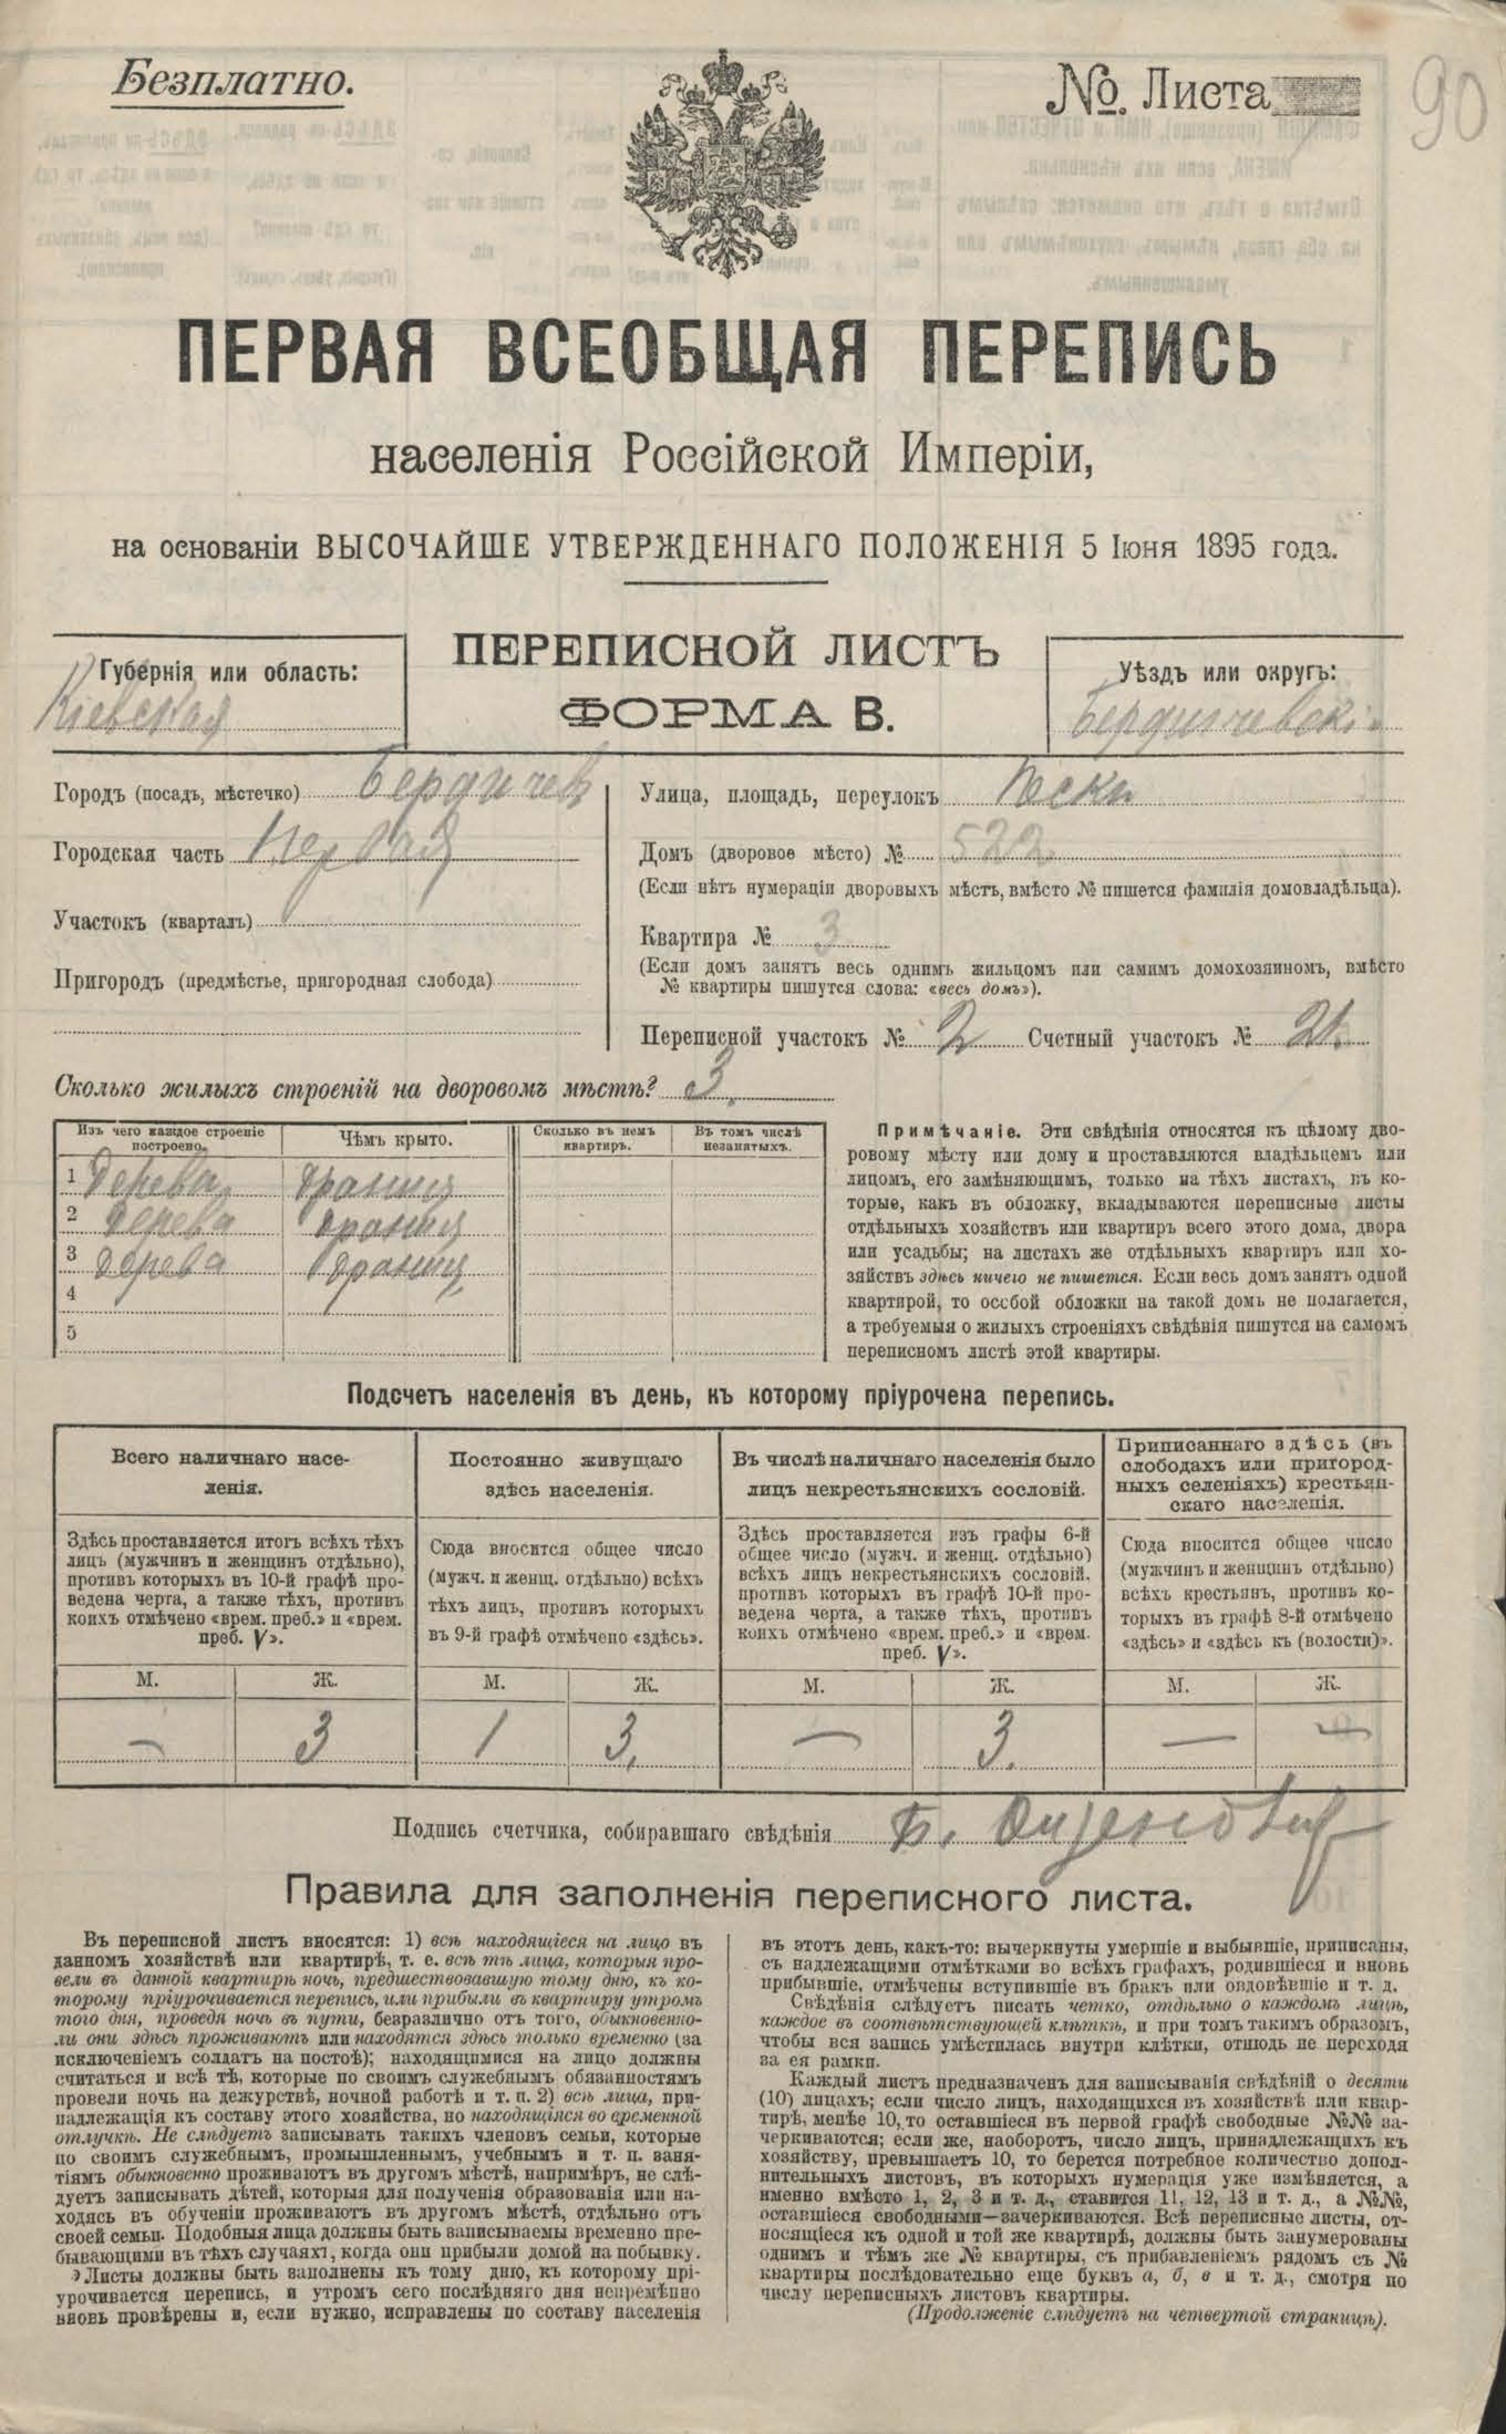 Безплатно.
№. Листа
90
ПЕРВАЯ ВСЕОБЩАЯ ПЕРЕПИСЬ
населенія Россійской Имперіи,
на основаніи ВЫСОЧАЙШЕ УТВЕРЖДЕННАГО ПОЛОЖЕНІЯ 5 Іюня 1895 года.
ПЕРЕПИСНОЙ ЛИСТЪ
ФОРМА В.
Губернія или область:
Кіевская
Уѣздъ или округъ:
Бердичевскі
Городъ (посадъ, мѣстечко) Бердичев
Городская часть Первая
Участокъ (кварталъ)
Пригородъ (предмѣстье, пригородная слобода)
Улица, площадь, переулокъ Пески
Домъ (дворовое мѣсто) № 522
(Если нѣтъ нумераціи дворовыхъ мѣстъ, вмѣсто № пишется фамилія домовладѣльца).
Квартира № 3
(Если домъ занятъ весь однимъ жильцомъ или самимъ домохозяиномъ, вмѣсто
№ квартиры пишутся слова: «весь домъ»).
Переписной участокъ № 2 Счетный участокъ № 21.
Сколько жилыхъ строеній на дворовомъ мѣстѣ? 3.
Изъ чего каждое строеніе
построено.
Чѣмъ крыто.
Сколько въ немъ
квартиръ.
Въ томъ числѣ
незанятыхъ.
1 Дерева драниц
2 Дерева драниц
3 дерева драниц
4
5
Примѣчаніе. Эти свѣдѣнія относятся къ цѣлому дво-
ровому мѣсту или дому и проставляются владѣльцемъ или
лицомъ, его замѣняющимъ, только на тѣхъ листахъ, въ ко-
торые, какъ въ обложку, вкладываются переписные листы
отдѣльныхъ хозяйствъ или квартиръ всего этого дома, двора
или усадьбы; на листахъ же отдѣльныхъ квартиръ или хо-
зяйствъ здѣсь ничего не пишется. Если весь домъ занятъ одной
квартирой, то особой обложки на такой домъ не полагается,
а требуемыя о жилыхъ строеніяхъ свѣдѣнія пишутся на самомъ
переписномъ листѣ этой квартиры.
Подсчетъ населенія въ день, къ которому пріурочена перепись.
Всего наличнаго насе-
ленія.
Здѣсь проставляется итогъ всѣхъ тѣхъ
лицъ (мужчинъ и женщинъ отдѣльно),
противъ которыхъ въ 10-й графѣ про-
ведена черта, а также тѣхъ, противъ
коихъ отмѣчено «врем. преб.» и «врем.
преб. V».
Постоянно живущаго
здѣсь населенія.
Сюда вносится общее число
(мужч. и женщ. отдѣльно) всѣхъ
тѣхъ лицъ, противъ которыхъ
въ 9-й графѣ отмѣчено «здѣсь».
Въ числѣ наличнаго населенія было
лицъ некрестьянскихъ сословій.
Здѣсь проставляется изъ графы 6-й
общее число (мужч. и женщ. отдѣльно)
всѣхъ лицъ некрестьянскихъ сословій,
противъ которыхъ въ графѣ 10-й про-
ведена черта, а также тѣхъ, противъ
коихъ отмѣчено «врем. преб.» и «врем.
преб. V».
Приписаннаго здѣсь (въ
слободахъ или пригород-
ныхъ селеніяхъ) крестьян-
скаго населенія.
Сюда вносится общее число
(мужчинъ и женщинъ отдѣльно)
всѣхъ крестьянъ, противъ ко-
торыхъ въ графѣ 8-й отмѣчено
«здѣсь» и «здѣсь къ (волости)».
М. Ж. М. Ж. М. Ж. М. Ж.
— 3 1 3. — 3. — —
Подпись счетчика, собиравшаго свѣдѣнія Б.
Правила для заполненія переписного листа.
Въ переписной листъ вносятся: 1) всѣ находящіеся на лицо въ
данномъ хозяйствѣ или квартирѣ, т. е. всѣ тѣ лица, которыя про-
вели въ данной квартирѣ ночь, предшествовавшую тому дню, къ ко-
торому пріурочивается перепись, или прибыли въ квартиру утромъ
того дня, проведя ночь въ пути, безразлично отъ того, обыкновенно-
ли они здѣсь проживаютъ или находятся здѣсь только временно (за
исключеніемъ солдатъ на постоѣ); находящимися на лицо должны
считаться и всѣ тѣ, которые по своимъ служебнымъ обязанностямъ
провели ночь на дежурствѣ, ночной работѣ и т. п. 2) всѣ лица, при-
надлежащія къ составу этого хозяйства, но находящіяся во временной
отлучкѣ. Не слѣдуетъ записывать такихъ членовъ семьи, которые
по своимъ служебнымъ, промышленнымъ, учебнымъ и т. п. заня-
тіямъ обыкновенно проживаютъ въ другомъ мѣстѣ, напримѣръ, не слѣ-
дуетъ записывать дѣтей, которыя для полученія образованія или на-
ходясь въ обученіи проживаютъ въ другомъ мѣстѣ, отдѣльно отъ
своей семьи. Подобныя лица должны быть записываемы временно пре-
бывающими въ тѣхъ случаяхъ, когда они прибыли домой на побывку.
Листы должны быть заполнены къ тому дню, къ которому прі-
урочивается перепись, и утромъ сего послѣдняго дня непремѣнно
вновь провѣрены и, если нужно, исправлены по составу населенія
въ этотъ день, какъ-то: вычеркнуты умершіе и выбывшіе, приписаны,
съ надлежащими отмѣтками во всѣхъ графахъ, родившіеся и вновь
прибывшіе, отмѣчены вступившіе въ бракъ или овдовѣвшіе и т. д.
Свѣдѣнія слѣдуетъ писать четко, отдѣльно о каждомъ лицѣ,
каждое въ соотвѣтствующей клѣткѣ, и при томъ такимъ образомъ,
чтобы вся запись умѣстилась внутри клѣтки, отнюдь не переходя
за ея рамки.
Каждый листъ предназначенъ для записыванія свѣдѣній о десяти
(10) лицахъ; если число лицъ, находящихся въ хозяйствѣ или квар-
тирѣ, менѣе 10, то оставшіеся въ первой графѣ свободные №№ за-
черкиваются; если же, наоборотъ, число лицъ, принадлежащихъ къ
хозяйству, превышаетъ 10, то берется потребное количество допол-
нительныхъ листовъ, въ которыхъ нумерація уже измѣняется, а
именно вмѣсто 1, 2, 3 и т. д., ставится 11, 12, 13 и т. д., а №№,
оставшіеся свободными—зачеркиваются. Всѣ переписные листы, от-
носящіеся къ одной и той же квартирѣ, должны быть занумерованы
однимъ и тѣмъ же № квартиры, съ прибавленіемъ рядомъ съ №
квартиры послѣдовательно еще буквъ а, б, в и т. д., смотря по
числу переписныхъ листовъ квартиры.
(Продолженіе слѣдуетъ на четвертой страницѣ).